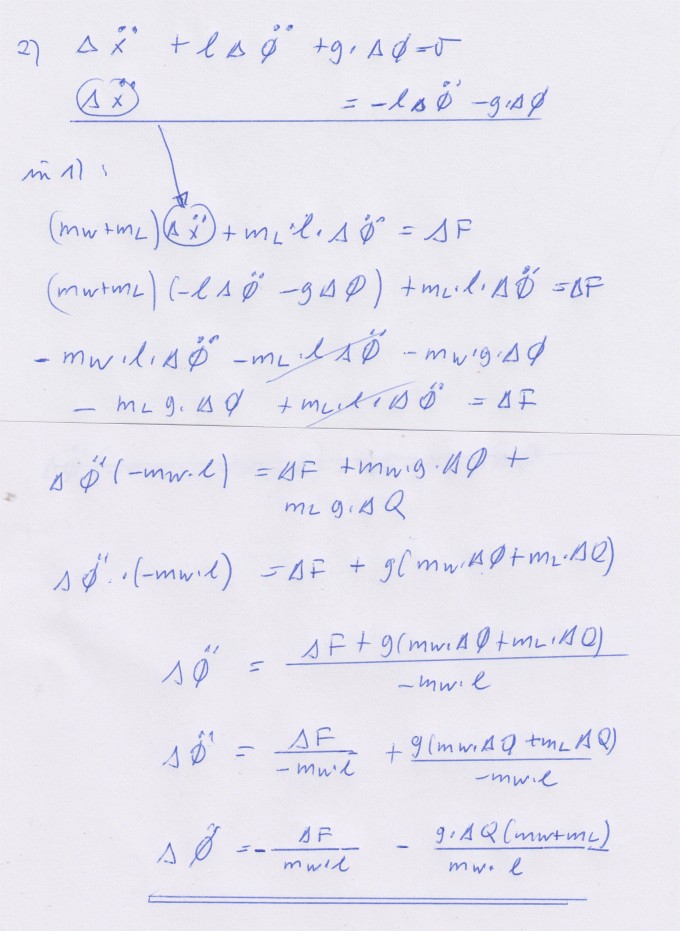 2) Δẍ + l Δφ̈ + g·Δφ = 0
Δẍ = -lΔφ̈ - g·Δφ
in 1) :
(mW+mL) Δẍ + mL·l·Δφ̈ = ΔF
(mW+mL) (-lΔφ̈ - gΔφ) + mL·l·Δφ̈ = ΔF
- mW·l·Δφ̈ - mL·lΔφ̈ - mW·g·Δφ
- mL g·Δφ + mL·l·Δφ̈ = ΔF
Δφ̈ (-mW·l) = ΔF + mW·g·Δφ +
mL g·Δφ
Δφ̈ ·(-mW·l) = ΔF + g(mW·Δφ + mL·Δφ)
ΔF + g(mW·Δφ + mL·Δφ)
Δφ̈ =
-mW·l
ΔF g(mW·Δφ + mL Δφ)
Δφ̈ = +
-mW·l -mW·l
ΔF g·Δφ (mW+mL)
Δφ̈ = - -
mW·l mW·l